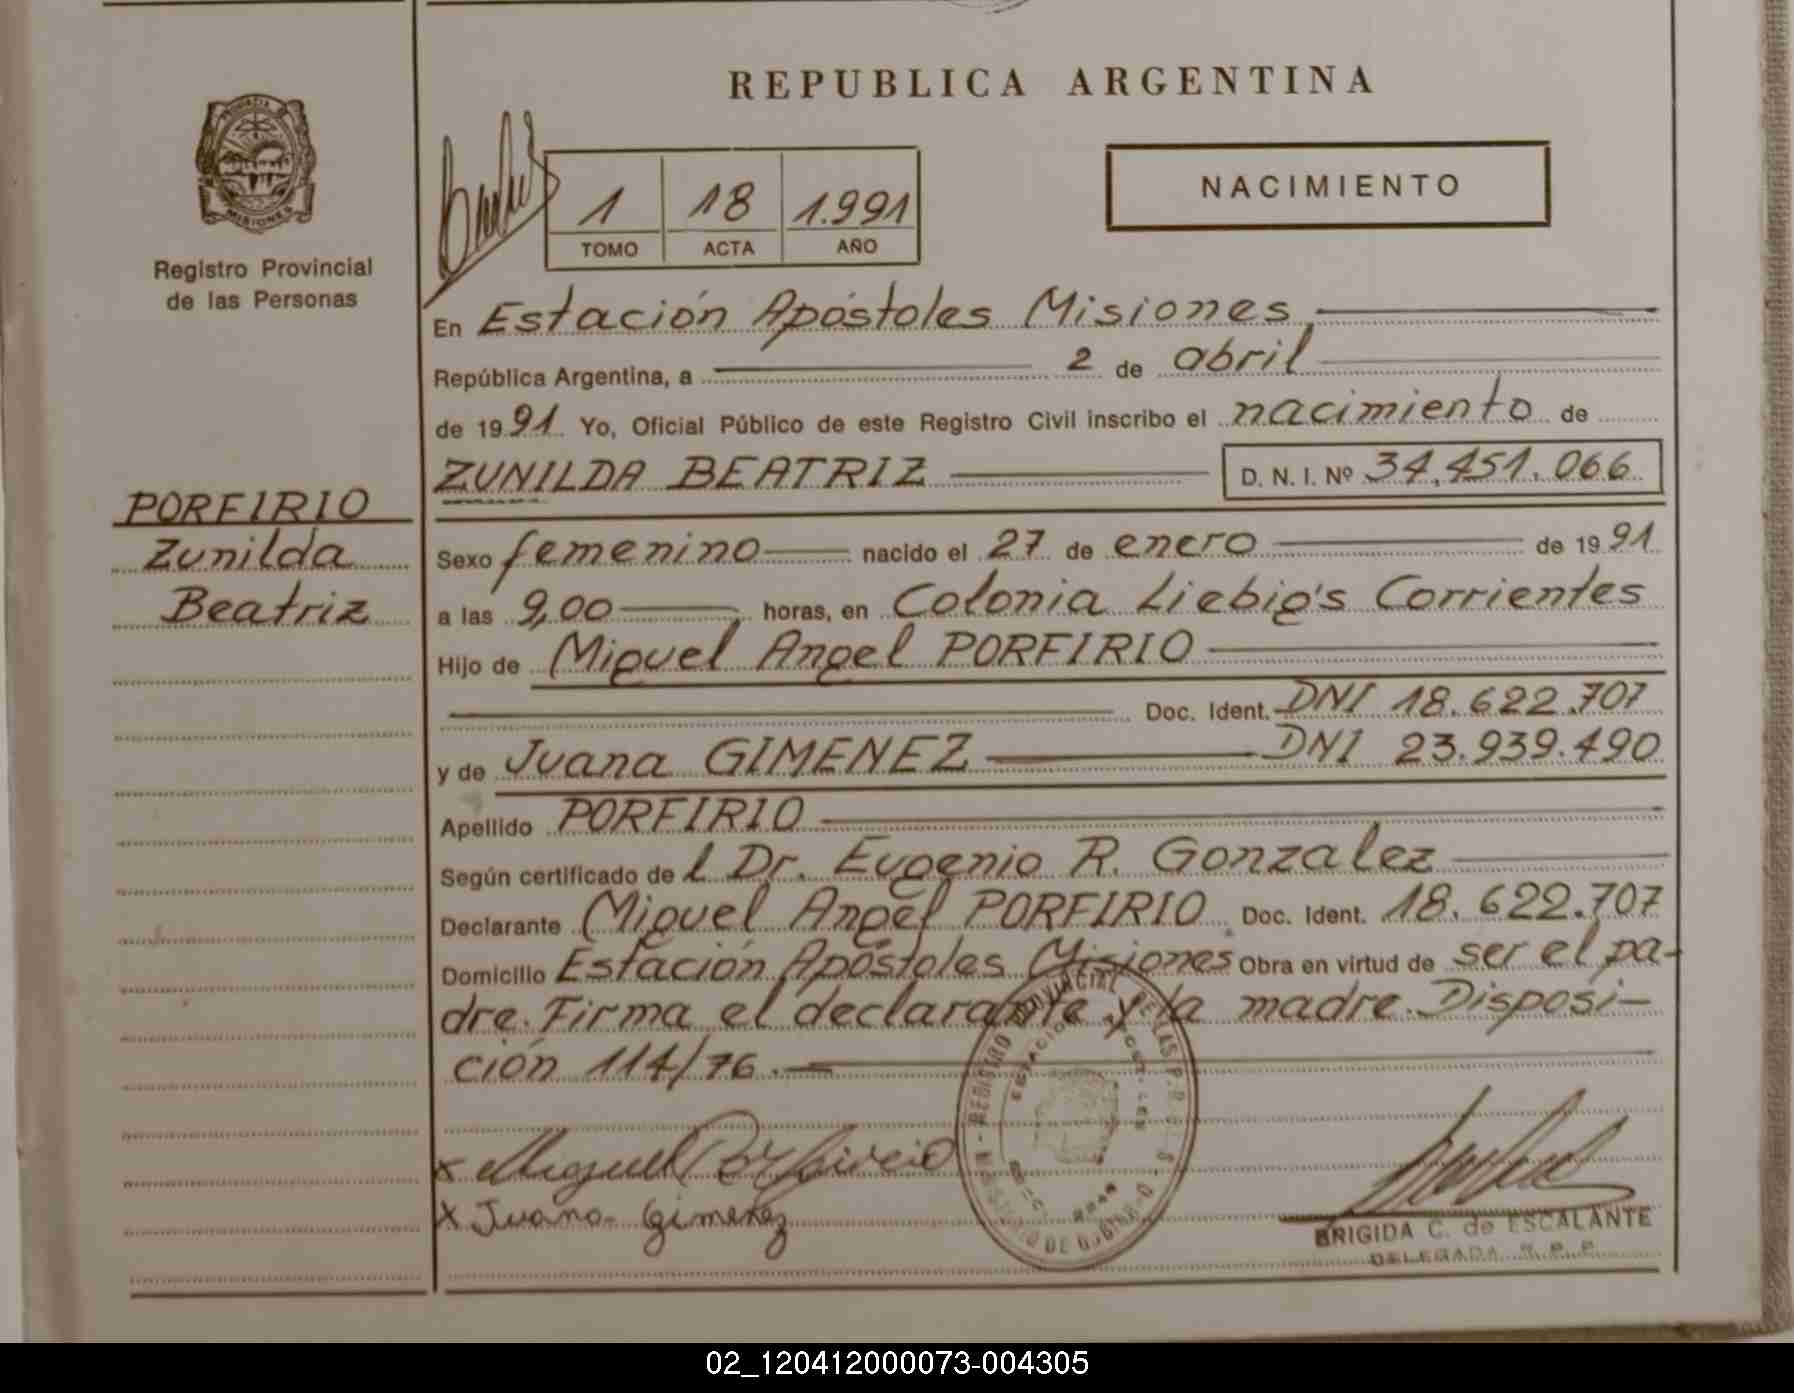 REPUBLICA ARGENTINA
PROVINCIA DE
MISIONES
Registro Provincial
de las Personas
1 18 1.991
TOMO ACTA AÑO
NACIMIENTO
En Estación Apóstoles Misiones
República Argentina, a 2 de abril
de 1991 Yo, Oficial Público de este Registro Civil inscribo el nacimiento de
ZUNILDA BEATRIZ D. N. I. Nº 34.451.066
PORFIRIO
Zunilda
Beatriz
Sexo femenino nacido el 27 de enero de 1991
a las 9,00 horas, en Colonia Liebig's Corrientes
Hijo de Miguel Angel PORFIRIO
Doc. Ident. DNI 18.622.707
y de Juana GIMENEZ DNI 23.939.490
Apellido PORFIRIO
Según certificado del Dr. Eugenio R. Gonzalez
Declarante Miguel Angel PORFIRIO Doc. Ident. 18.622.707
Domicilio Estación Apóstoles Misiones Obra en virtud de ser el pa-
dre. Firma el declarante y la madre. Disposi-
ción 114/76.-
REGISTRO PROVINCIAL DE LAS P.
MINISTERIO DE GOBIERNO
x Miguel Porfirio
x Juana Gimenez
BRIGIDA C. de ESCALANTE
DELEGADA R. P. P.
02_120412000073-004305